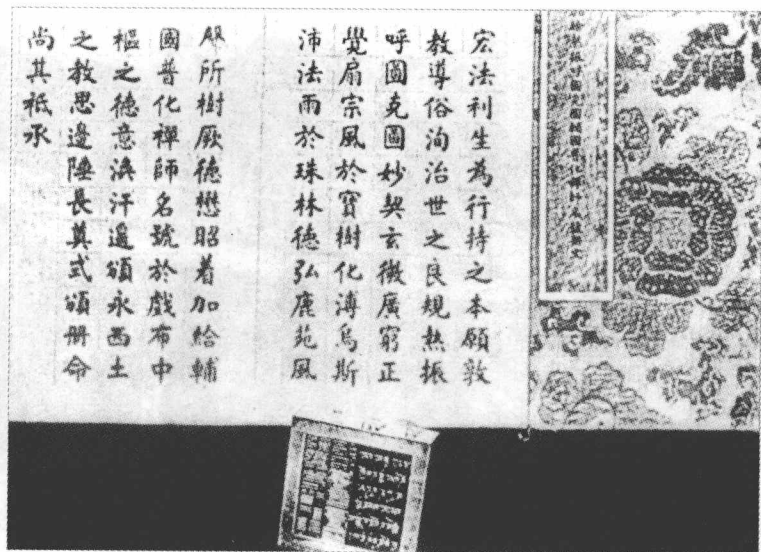 給熱振呼圖克圖輔國普化禪師名號冊文
宏法利生為行持之本願敦
教導俗洵治世之良規熱振
呼圖克圖妙契玄微廣窮正
覺扇宗風於寶樹化溥烏斯
沛法雨於珠林德弘鹿苑風
聲所樹厥德懋昭着加給輔
國普化禪師名號於戲布中
樞之德意渙汗遙頒永西土
之教思邊陲長奠式頒冊命
尚其祗承